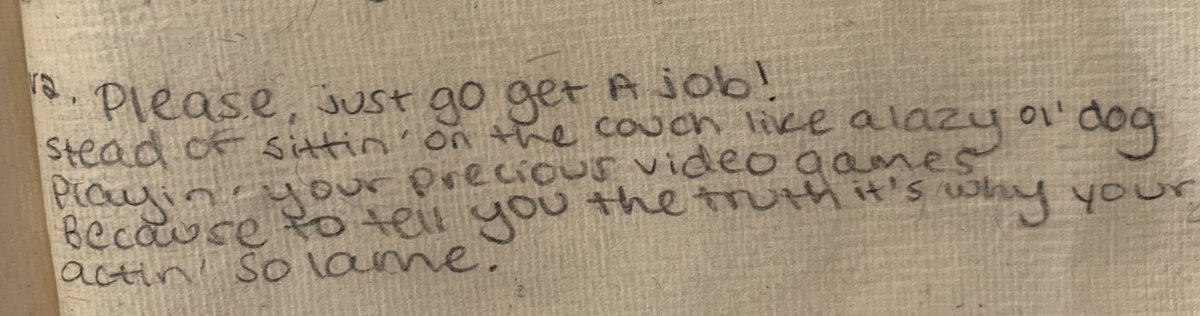 v2. Please, just go get A job!
stead of sittin' on the couch like a lazy ol' dog
Playin' your precious video games
Because to tell you the truth it's why your
actin' so lame.